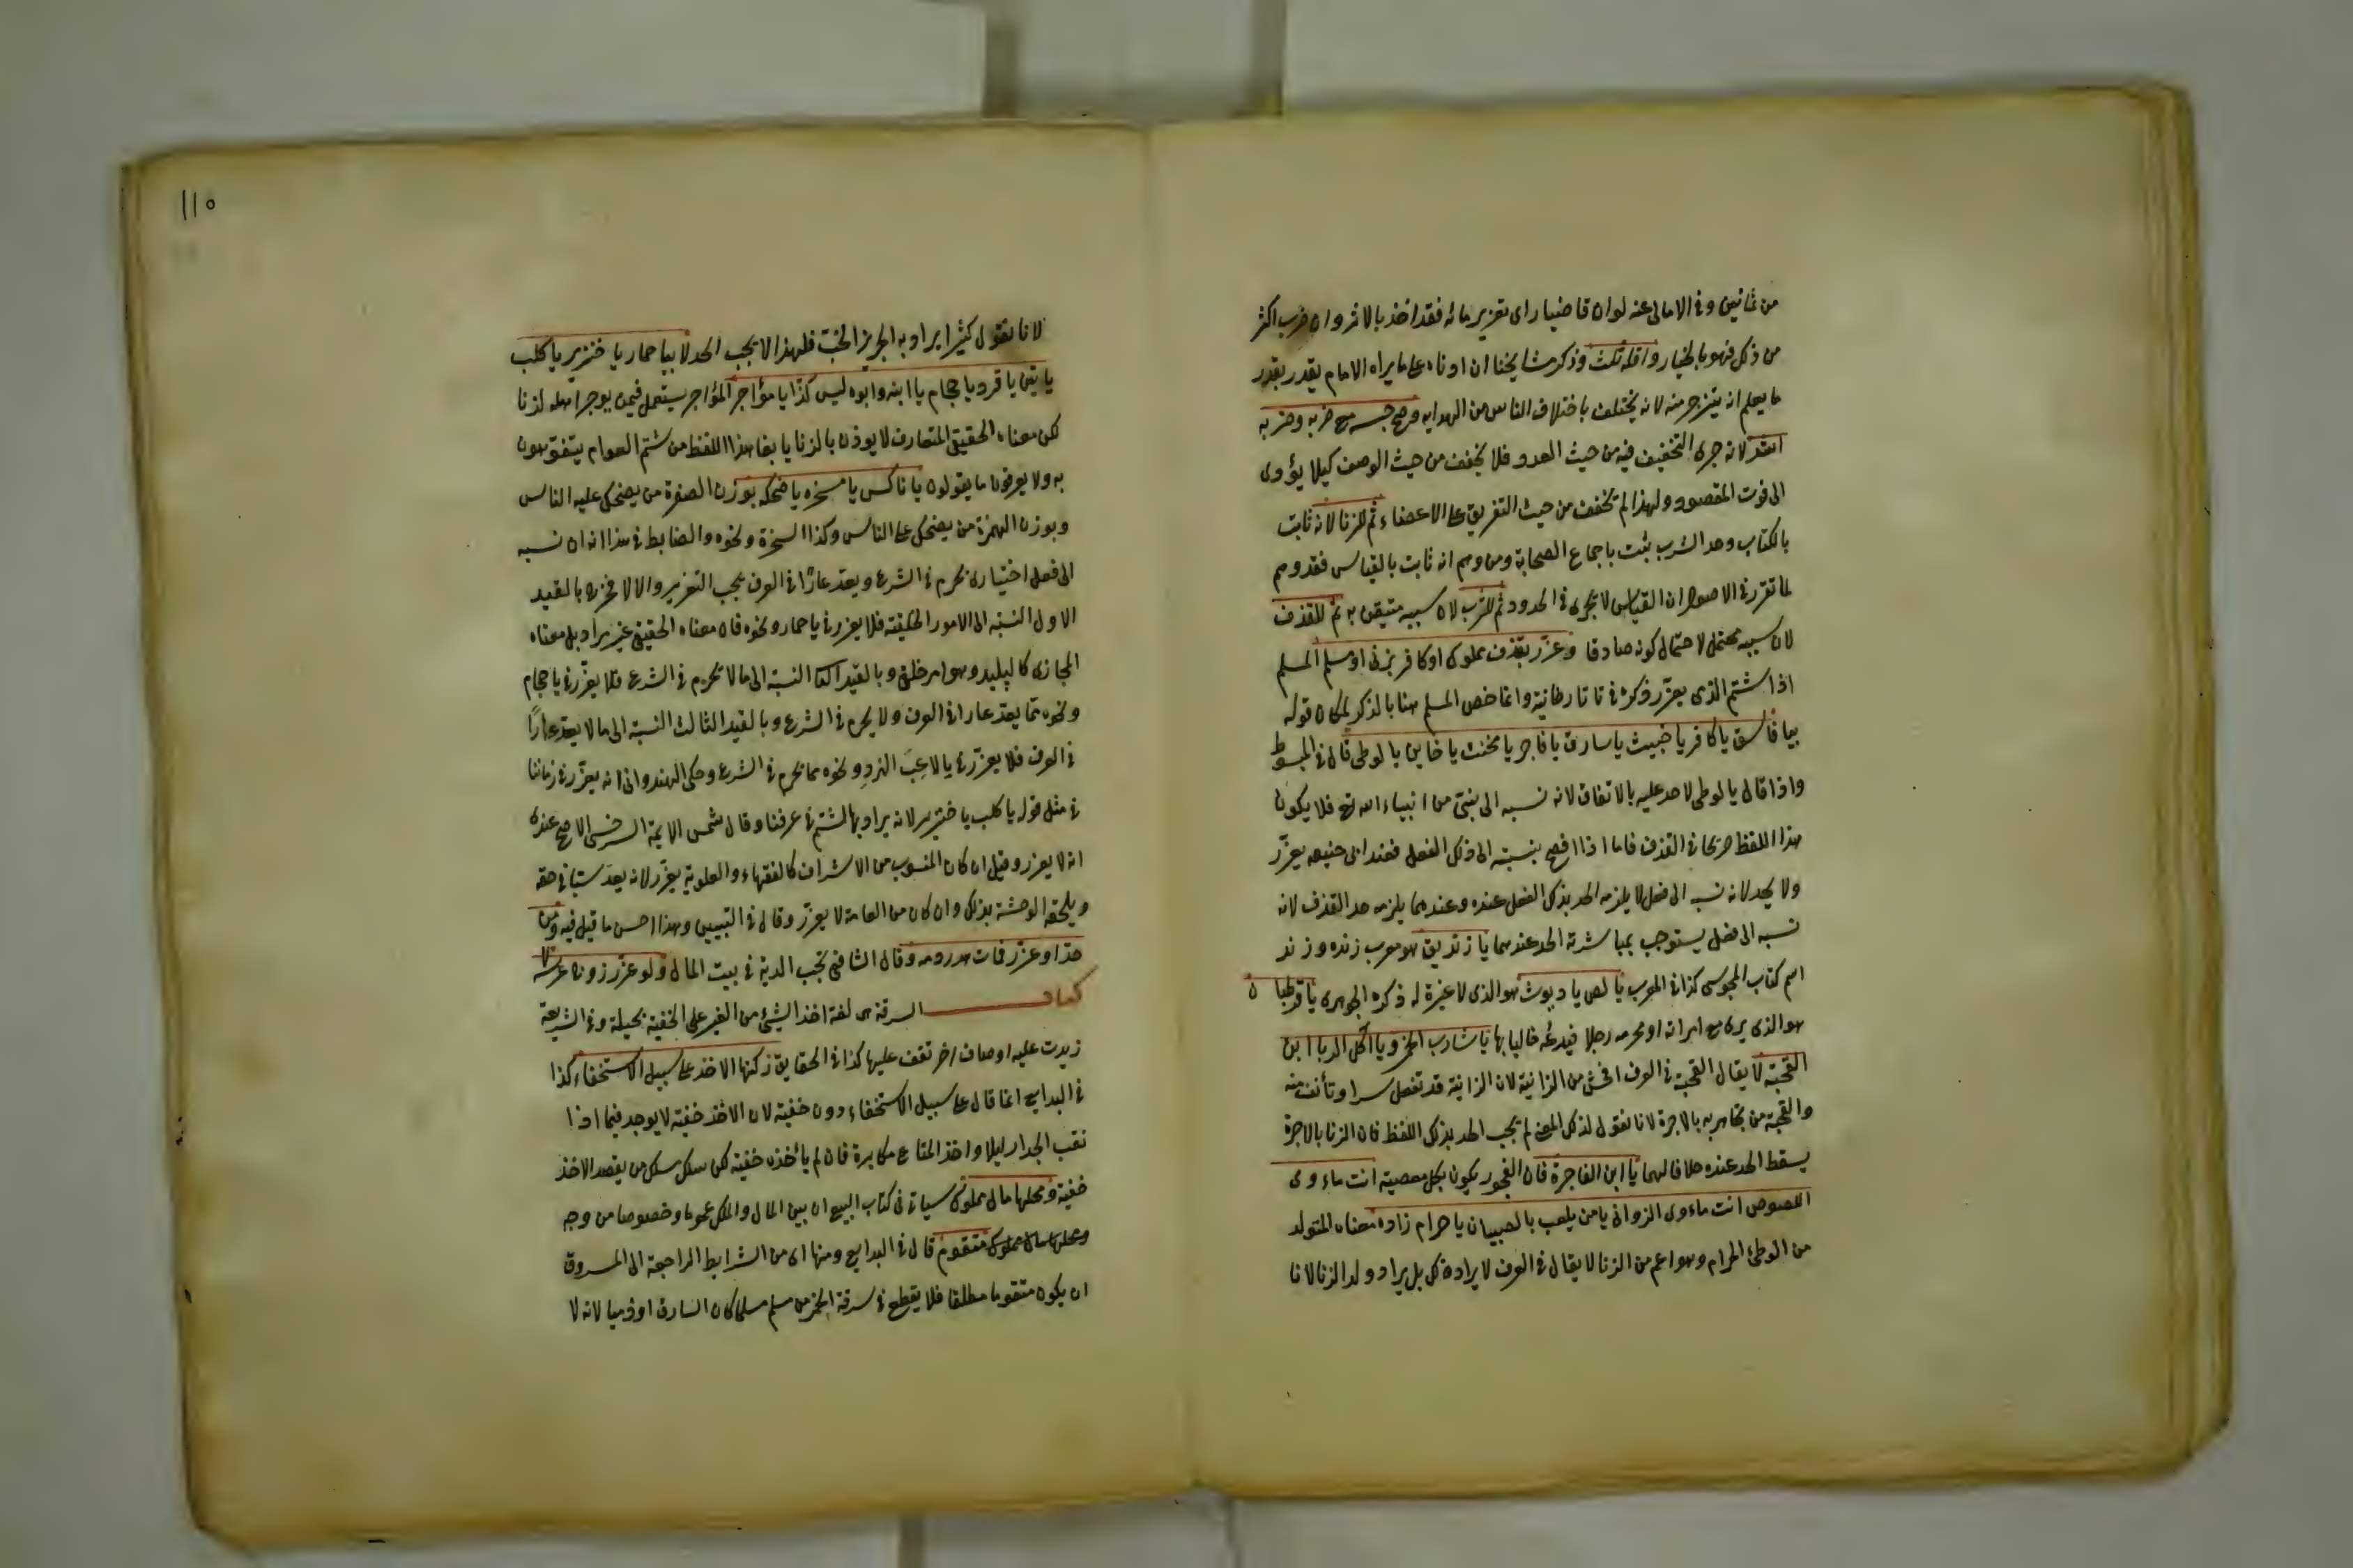 من ثمانين وفي الامالي عنه لو ان قاضيا راى تعزير مائة فقد اخذ بالاثر وان ضرب اكثر
من ذلك فهو بالخيار واقله ثلث وذكر مشايخنا ان ادناه على ما يراه الامام يقدر بقدر
ما يعلم انه ينزجر منه لانه يختلف باختلاف الناس من الهدايه وصح حبسه مع ضربه وضربه
اشد لانه جرى التخفيف فيه من حيث العدد فلا يخفف من حيث الوصف كيلا يؤدى
الى فوت المقصود ولهذا لم تخفف من حيث التفريق على الاعضاء ثم للزنا لانه ثابت
بالكتاب وحد الشرب ثبت باجماع الصحابة ومن وهم انه ثابت بالقياس فقد وهم
لما تقرر في الاصول ان القياس لا يجرى في الحدود ثم للشرب لان سببه متيقن به ثم للقذف
لان سببه محتمل لاحتمال كونه صادقا وعزر بقذف مملوك او كافر بزنى او مسلم المسلم
اذا شتم الذى يعزر ذكره في تاتارخانية وانما خص المسلم هنا بالذكر لمكان قوله
بيا فاسق يا كافر يا خبيث يا سارق يا فاجر يا مخنث يا خاين يا لوطى قال في المبسوط
واذا قال يا لوطى لا حد عليه بالاتفاق لانه نسبه الى نبى من انبياء الله تع فلا يكون
هذا اللفظ صريحا في القذف فاما اذا افصح بنسبته الى ذلك الفعل فعند ابى حنيفه يعزر
ولا يحد لانه نسبه الى فعل لا يلزمه الحد بذلك الفعل عنده وعندهما يلزمه حد القذف لانه
نسبه الى فعل يستوجب بمباشرته الحد عندهما يا زنديق هو معرب زنده وزند
اسم كتاب المجوسى كذا في المعرب يا لص يا ديوث هو الذى لا غيرة له ذكره الجوهرى يا قرطبان
هو الذى يرى مع امراته او محرمه رجلا فيدعه خاليا بها يا شارب الخمر ويا آكل الربا يا ابن
القحبة لا يقال القحبة في العرف افحش من الزانية لان الزانية قد تفعل سرا وتأنف منه
والقحبة من تجاهر به بالاجرة لانا نقول لذلك المعنى لم يجب الحد بذلك اللفظ فان الزنا بالاجرة
يسقط الحد عنده خلافا لهما يا ابن الفاجرة فان الفجور يكون بكل معصية انت ماءوى
اللصوص انت ماءوى الزوانى يا من يلعب بالصبيان يا حرام زاده معناه المتولد
من الوطئ الحرام وهو اعم من الزنا لا يقال في العرف لا يراد ذلك بل يراد ولد الزنا لانا
١١٥
لانا نقول كثيرا يراد به الجربز الخب فلهذا لا يجب الحد لا بيا حمار يا خنزير يا كلب
يا تيس يا قرد يا حجام يا ابنه وابوه ليس كذا يا مؤاجر المؤاجر يستعمل فيمن يوجر اهله لزنا
لكن معناه الحقيقى المتعارف لا يوذن بالزنا يا بغا هذا اللفظ من شتم العوام يتفوهون
به ولا يعرفون ما يقولون يا ناكس يا مسخره يا ضحكه بوزن الصفرة من يضحك عليه الناس
وبوزن الهمزة من يضحك على الناس وكذا السخرة ونحوه والضابط في هذا انه ان نسبه
الى فعل اختيارى يحرم في الشرع ويعد عارًا في العرف يجب التعزير والا لا فخرج بالقيد
الاول النسبة الى الامور الخلقية فلا يعزر في يا حمار ونحوه فان معناه الحقيقى غير مراد بل معناه
المجازى كالبليد وهو امر خلقى وبالقيد النسبة الى ما لا يحرم في الشرع فلا يعزر في يا حجام
ونحوه مما يعد عارا في العرف ولا يحرم في الشرع وبالقيد الثالث النسبة الى ما لا يعد عارًا
في العرف فلا يعزر في يا لاعب النرد ونحوه مما يحرم في الشرع وحكى الهندوانى انه يعزر في زماننا
في مثل قوله يا كلب يا خنزير لانه يراد بها الشتم في عرفنا وقال شمس الايمة السرخسى الاصح عندى
انه لا يعزر وقيل ان كان المنسوب من الاشراف كالفقهاء والعلوية يعزر لانه يعد سبا في حقه
ويلحقه الوحشة بذلك وان كان من العامة لا يعزر وقال في التبيين وهذا احسن ما قيل فيه ومن
حد او عزر فمات هدر دمه وقال الشافعى تجب الدية في بيت المال ولو عزر زوج عرسه لا
كتاب السرقة هى لغة اخذ الشيئ من الغير على الخفية بحيلة وفي الشريعة
زيدت عليه اوصاف اخر تقف عليها كذا في الحقايق ركنها الاخذ على سبيل الاستخفاء كذا
في البدايع انما قال على سبيل الاستخفاء دون خفية لان الاخذ خفية لا يوجد فيما اذا
نقب الجدار ليلا واخذ المتاع مكابرة فان لم يأخذه خفية لكن سلك سلك من يقصد الاخذ
خفية ومحلها مال مملوك سياتى في كتاب البيع ان بين المال والملك عموما وخصوصا من وجه
ومحلها مال مملوك متقوم قال في البدايع ومنها اى من الشرايط الراجعة الى المسروق
ان يكون متقوما مطلقا فلا يقطع في سرقة الخمر من مسلم مسلما كان السارق او ذميا لانه لا